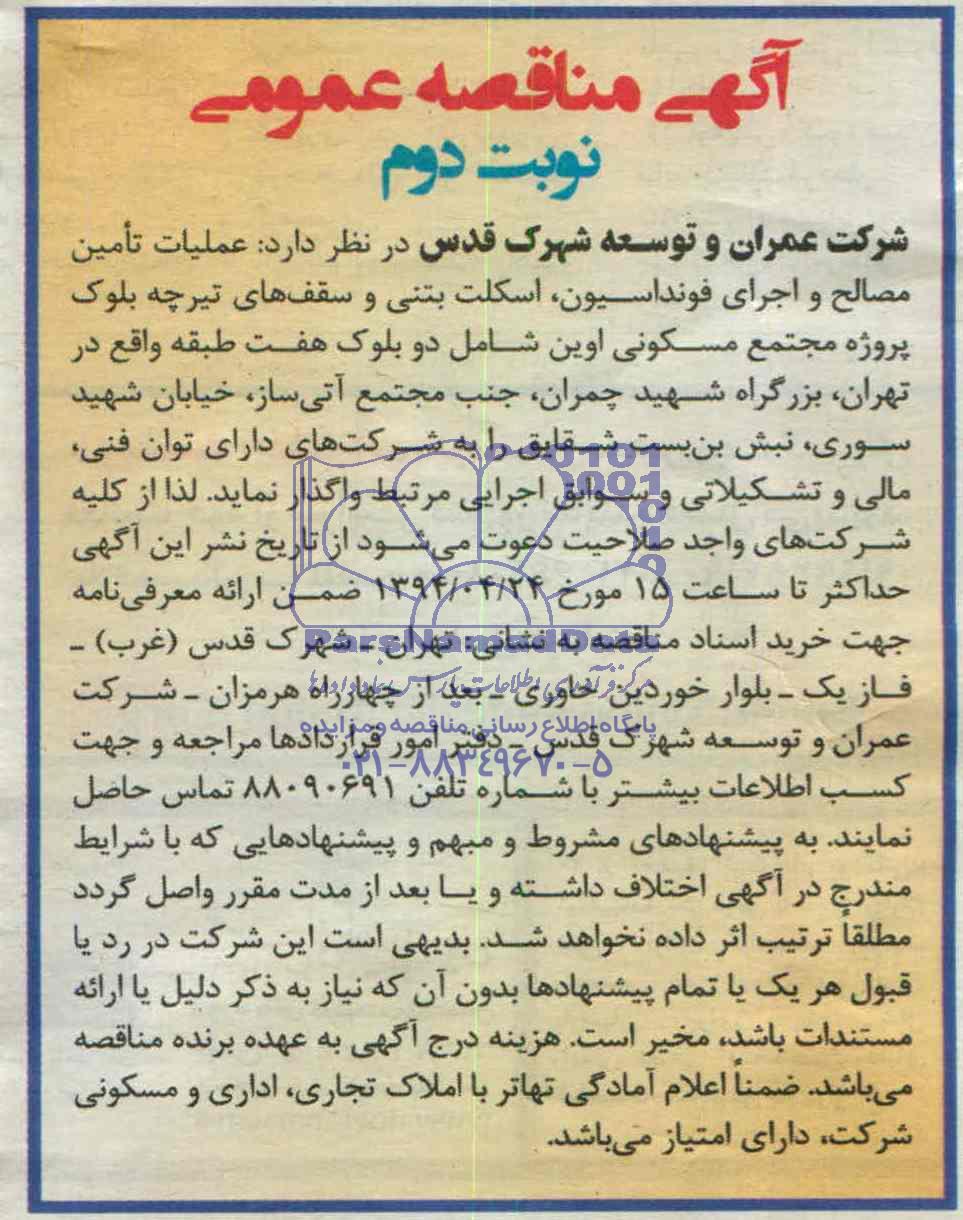 آگهی مناقصه عمومی
نوبت دوم
شرکت عمران و توسعه شهرک قدس در نظر دارد: عملیات تأمین
مصالح و اجرای فونداسیون، اسکلت بتنی و سقف‌های تیرچه بلوک
پروژه مجتمع مسکونی اوین شامل دو بلوک هفت طبقه واقع در
تهران، بزرگراه شهید چمران، جنب مجتمع آتی‌ساز، خیابان شهید
سوری، نبش بن‌بست شقایق را به شرکت‌های دارای توان فنی،
مالی و تشکیلاتی و سوابق اجرایی مرتبط واگذار نماید. لذا از کلیه
شرکت‌های واجد صلاحیت دعوت می‌شود از تاریخ نشر این آگهی
حداکثر تا ساعت ۱۵ مورخ ۱۳۹۴/۰۴/۲۴ ضمن ارائه معرفی‌نامه
جهت خرید اسناد مناقصه به نشانی: تهران ـ شهرک قدس (غرب) ـ
فاز یک ـ بلوار خوردین خاوری ـ بعد از چهارراه هرمزان ـ شرکت
عمران و توسعه شهرک قدس ـ دفتر امور قراردادها مراجعه و جهت
کسب اطلاعات بیشتر با شماره تلفن ۸۸۰۹۰۶۹۱ تماس حاصل
نمایند. به پیشنهادهای مشروط و مبهم و پیشنهادهایی که با شرایط
مندرج در آگهی اختلاف داشته و یا بعد از مدت مقرر واصل گردد
مطلقاً ترتیب اثر داده نخواهد شد. بدیهی است این شرکت در رد یا
قبول هر یک یا تمام پیشنهادها بدون آن که نیاز به ذکر دلیل یا ارائه
مستندات باشد، مخیر است. هزینه درج آگهی به عهده برنده مناقصه
می‌باشد. ضمناً اعلام آمادگی تهاتر با املاک تجاری، اداری و مسکونی
شرکت، دارای امتیاز می‌باشد.
ParsNamadData
پایگاه اطلاع رسانی مناقصه و مزایده
۰۲۱-۸۸۳۴۹۶۷۰-۵